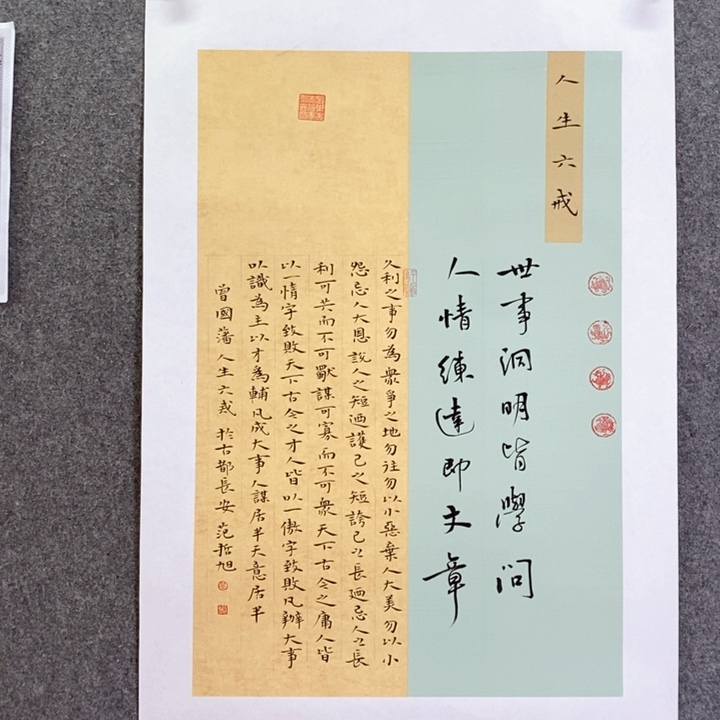 人生六戒
世事洞明皆學问
人情練達即文章
久利之事勿為衆爭之地勿往勿以小惡棄人大美勿以小
怨忘人大恩說人之短迺護己之短誇己之長迺忌人之長
利可共而不可獨謀可寡而不可衆天下古今之庸人皆
以一惰字致敗天下古今之才人皆以一傲字致敗凡辦大事
以識為主以才為輔凡成大事人謀居半天意居半
曾國藩人生六戒 於古都長安 范哲旭